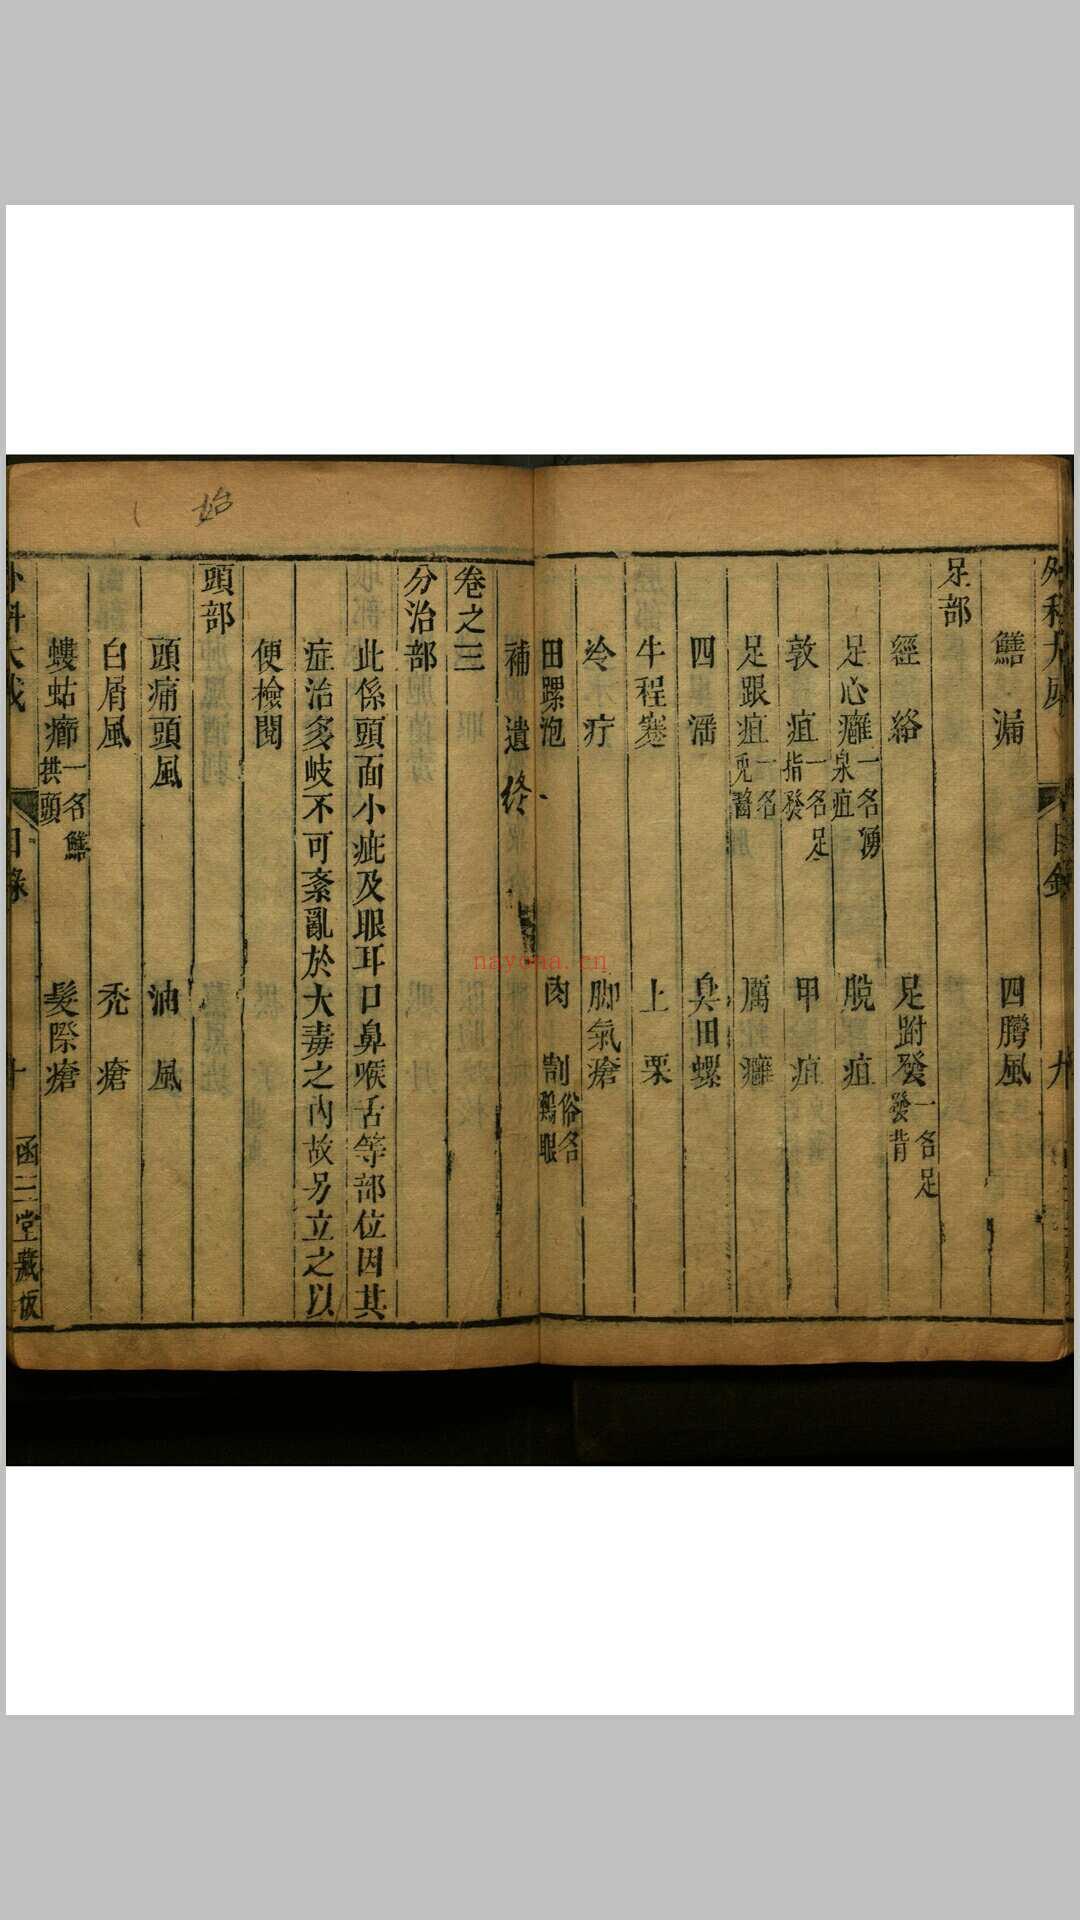 外科大成
目錄
九
鱔漏　四臁風
足部
經絡　足跗發一名足發背
足心癰一名湧泉疽　脫疽
敦疽一名足指發　甲疽
足跟疽一名兎齧　厲癰
四淫　臭田螺
牛程蹇　上栗
冷疔　脚氣瘡
田螺泡　肉刺俗名鷄眼
補遺終
卷之三
分治部
此係頭面小疵及眼耳口鼻喉舌等部位因其
症治多岐不可紊亂於大毒之內故另立之以
便檢閱
頭部
頭痛頭風　油風
白屑風　禿瘡
螻蛄癤一名鱔拱頭　髮際瘡
外科大成
目錄
十
函三堂藏板
始
nayona.cn